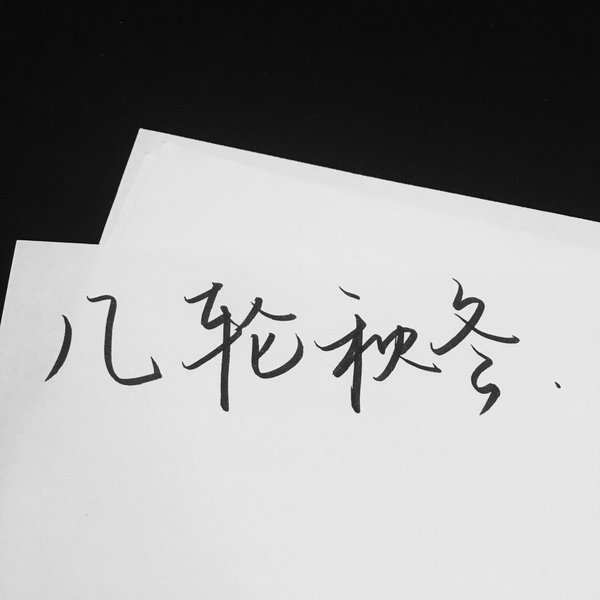 几轮秋冬.